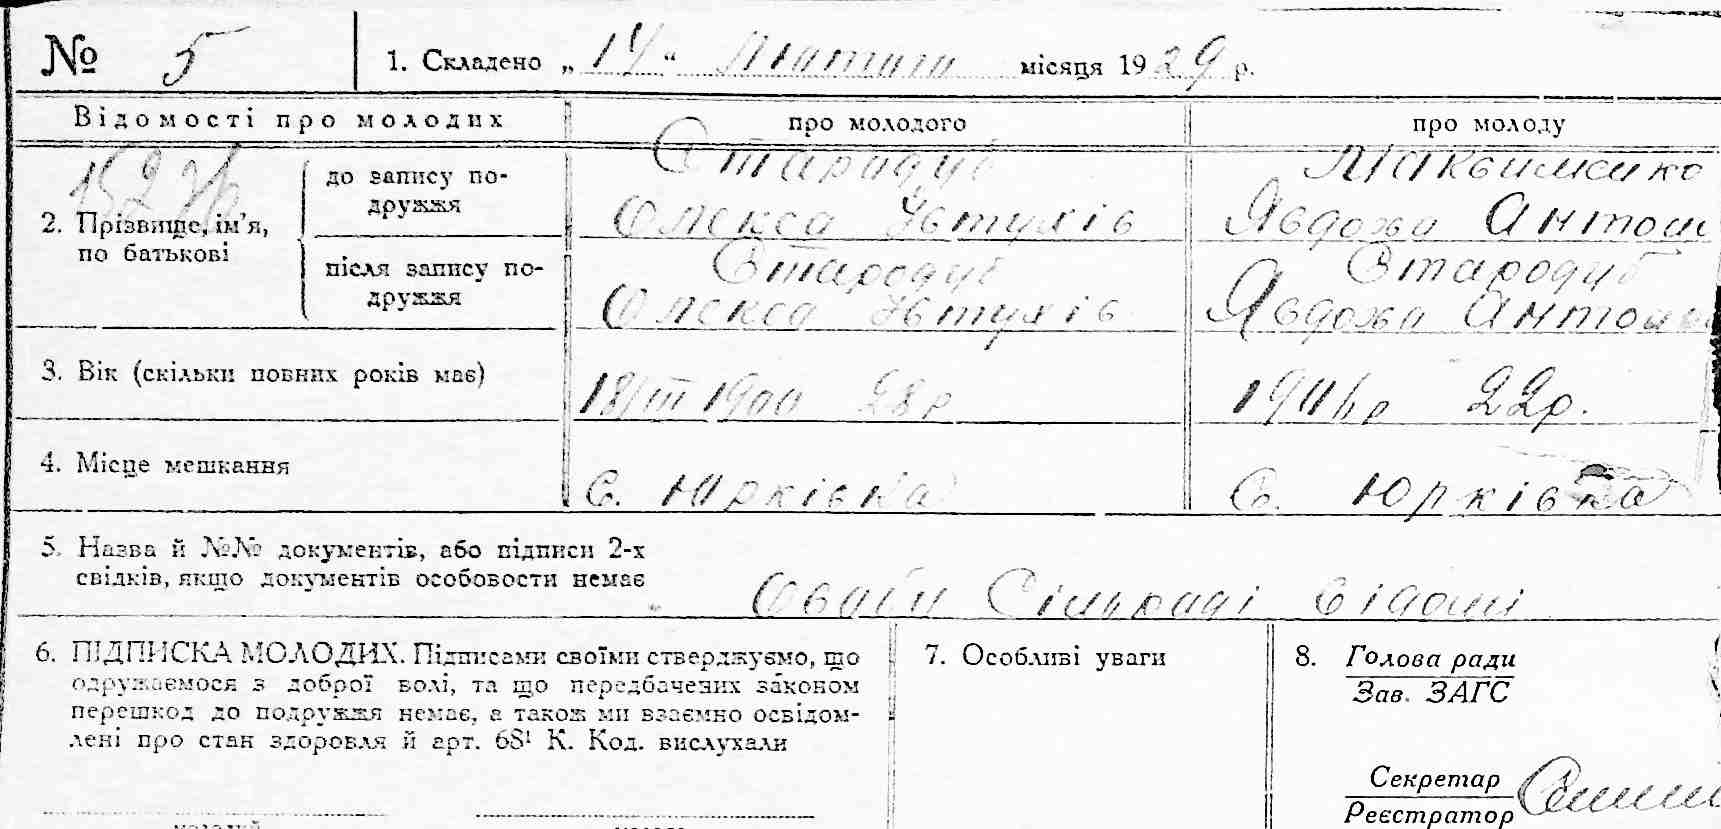 № 5
1. Складено „14“ Лютого місяця 1929 р.
Відомості про молодих
про молодого
про молоду
2. Прізвище, ім’я, по батькові
до запису подружжя
Стародуб
Олекса Євтухів
Максименко
Явдоха Антон
після запису подружжя
Стародуб
Олекса Євтухів
Стародуб
Явдоха Антон
3. Вік (скільки повних років має)
18/III 1900 28р
1906р 22р.
4. Місце мешкання
с. Юрківка
с. Юрківка
5. Назва й №№ документів, або підписи 2-х
свідків, якщо документів особовости немає
Особи Сільраді відомі
6. ПІДПИСКА МОЛОДИХ. Підписами своїми стверджуємо, що
одружаємося з доброї волі, та що передбачених законом
перешкод до подружжя немає, а також ми взаємно освідом-
лені про стан здоровля й арт. 68¹ К. Код. вислухали
7. Особливі уваги
8. Голова ради
Зав. ЗАГС
Секретар
Реєстратор